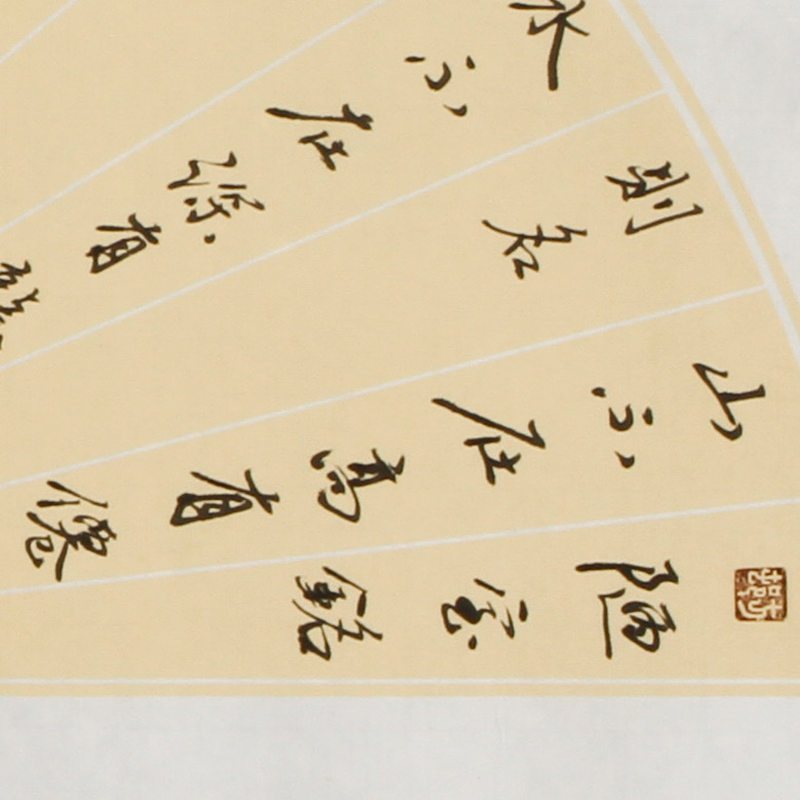 陋室銘
山不在高有僊
則名
水不在深有